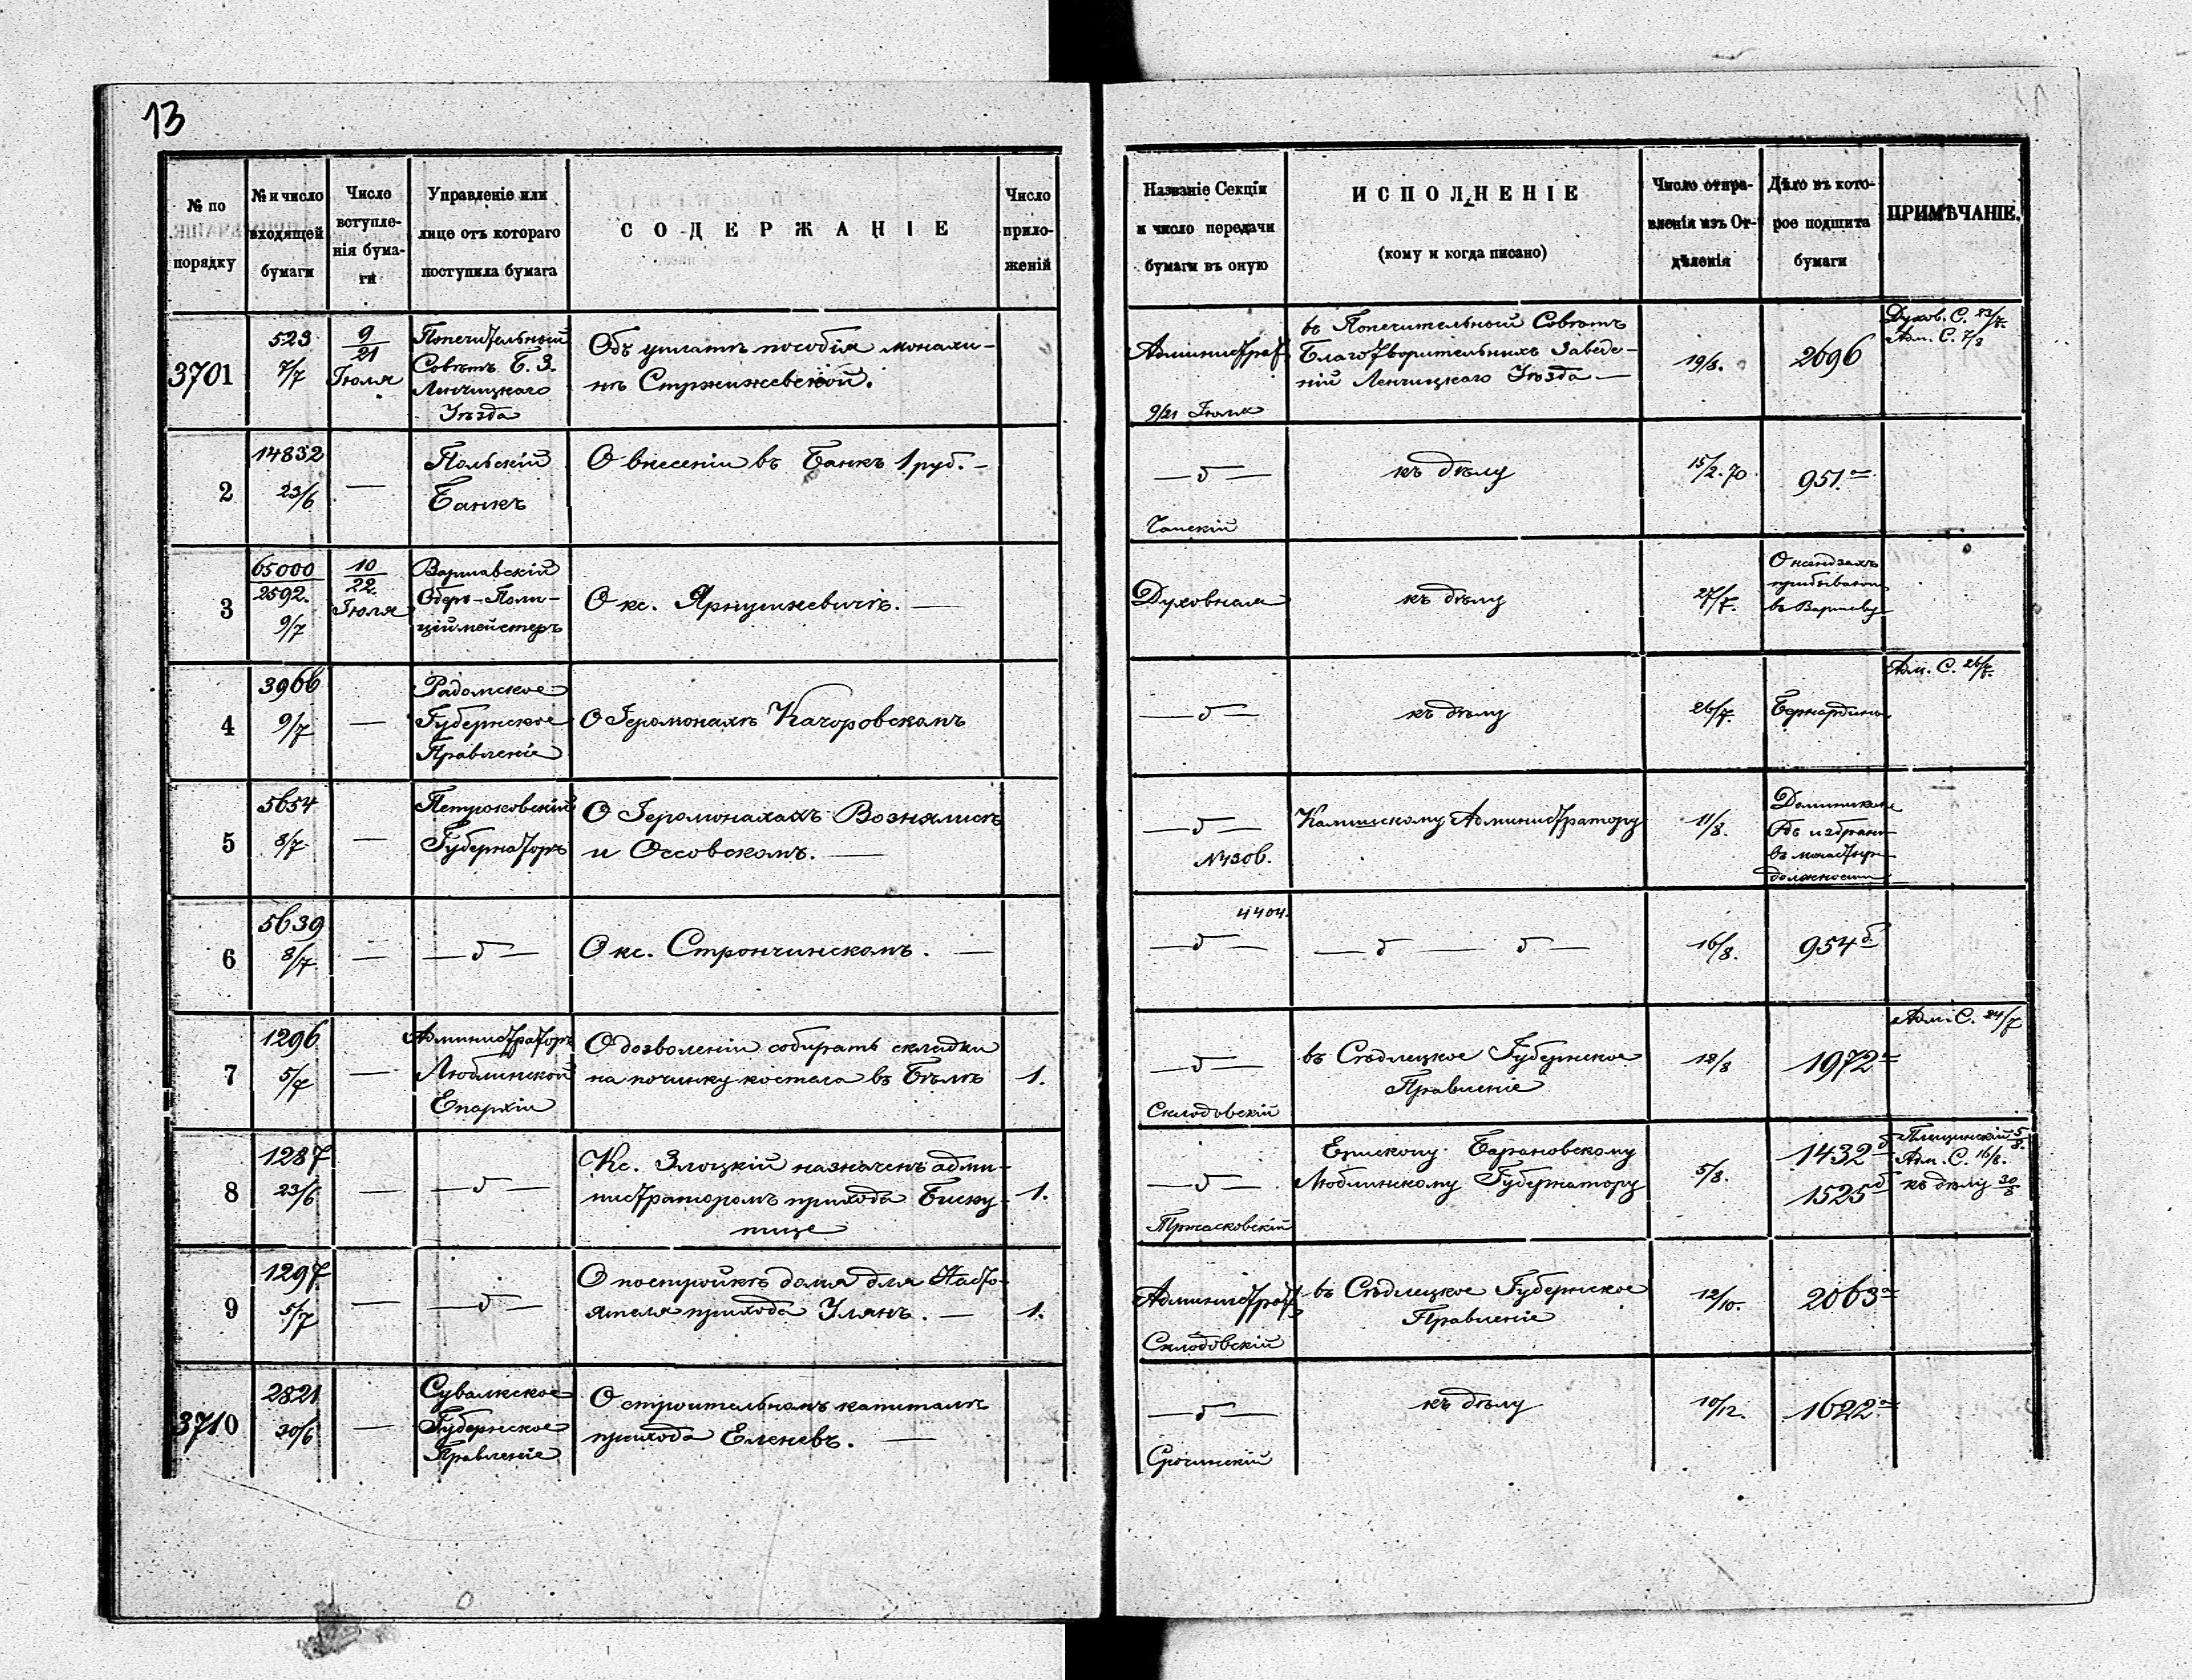 13
№ по порядку
№ и число входящей бумаги
Число вступле-нія бума-ги
Управленіе или лице отъ котораго поступила бумага
СОДЕРЖАНІЕ
Число прило-женій
Названіе Секціи и число передачи бумаги въ оную
ИСПОЛНЕНІЕ
(кому и когда писано)
Число отпра-вленія изъ От-дѣленія
Дѣло въ кото-рое подшита бумаги
ПРИМѢЧАНІЕ.
3701
523
7/7
9/21
Іюля
Попечительный
Совѣтъ Б. З.
Ленчицкаго
Уѣзда
Объ уплатѣ пособія монахи-
нѣ Стржижевской.
Администрат
9/21 Іюля
въ Попечительный Совѣтъ
Благотворительныхъ Заведе-
ній Ленчицкаго Уѣзда —
19/8.
2696
Духов. С. 23/7.
Адм. С. 7/8
2
14832
23/6
—
Польскій
Банкъ
О внесеніи въ Банкъ 1 руб. –
— д —
къ дѣлу
15/2. 70
951. а
3
65000
2592.
9/7
10/22.
Іюля
Варшавскій
Оберъ-Поли-
ціймейстеръ
О кс. —
Духовная
къ дѣлу
27/7.
О ксендзахъ
въ Варшаву
4
3966
9/7
—
Радомское
Губернское
Правленіе
О Іеромонахѣ Качоровскомъ
— д —
къ дѣлу
26/7.
Бернардины
Адм. С. 26/7.
5
5654
8/7
—
Петроковскій
Губернаторъ
О Іеромонахахъ
и Оссовскомъ. —
— д —
№ 4306.
Калишскому Администратору
11/8.
Доминикане
Объ избран
въ монастыр
должности
6
5639
8/7
—
— д —
О кс. Строчинскомъ. —
4404.
— д —
— д — д —
16/8.
954 б
7
1296
5/7
—
Администраторъ
Люблинской
Епархіи
О дозволеніи собирать складки
на починку костела въ Бѣлѣ
1.
— д —
Склодовскій
въ Сѣдлецкое Губернское
Правленіе
18/8
1972 а
Адм. С. 24/7
8
1287
23/6
—
— д —
Кс. Злоцкій назначенъ адми-
нистраторомъ прихода Биску-
пице
1.
— д —
Тржасковскій
Епископу Барановскому
Люблинскому Губернатору
5/8.
1432 б
1525 б
5/8.
Адм. С. 16/8.
къ дѣлу 30/8
9
1297
5/7
—
— д —
О постройкѣ дома для Насто-
ятеля прихода Улянъ. —
1.
Администрат
Склодовскій
въ Сѣдлецкое Губернское
Правленіе
12/10.
2063 а
3710
2821
30/6
—
Сувалкское
Губернское
Правленіе
О строительномъ капиталѣ
прихода Еленевъ. —
— д —
Срочинскій
къ дѣлу
10/12.
1622 а